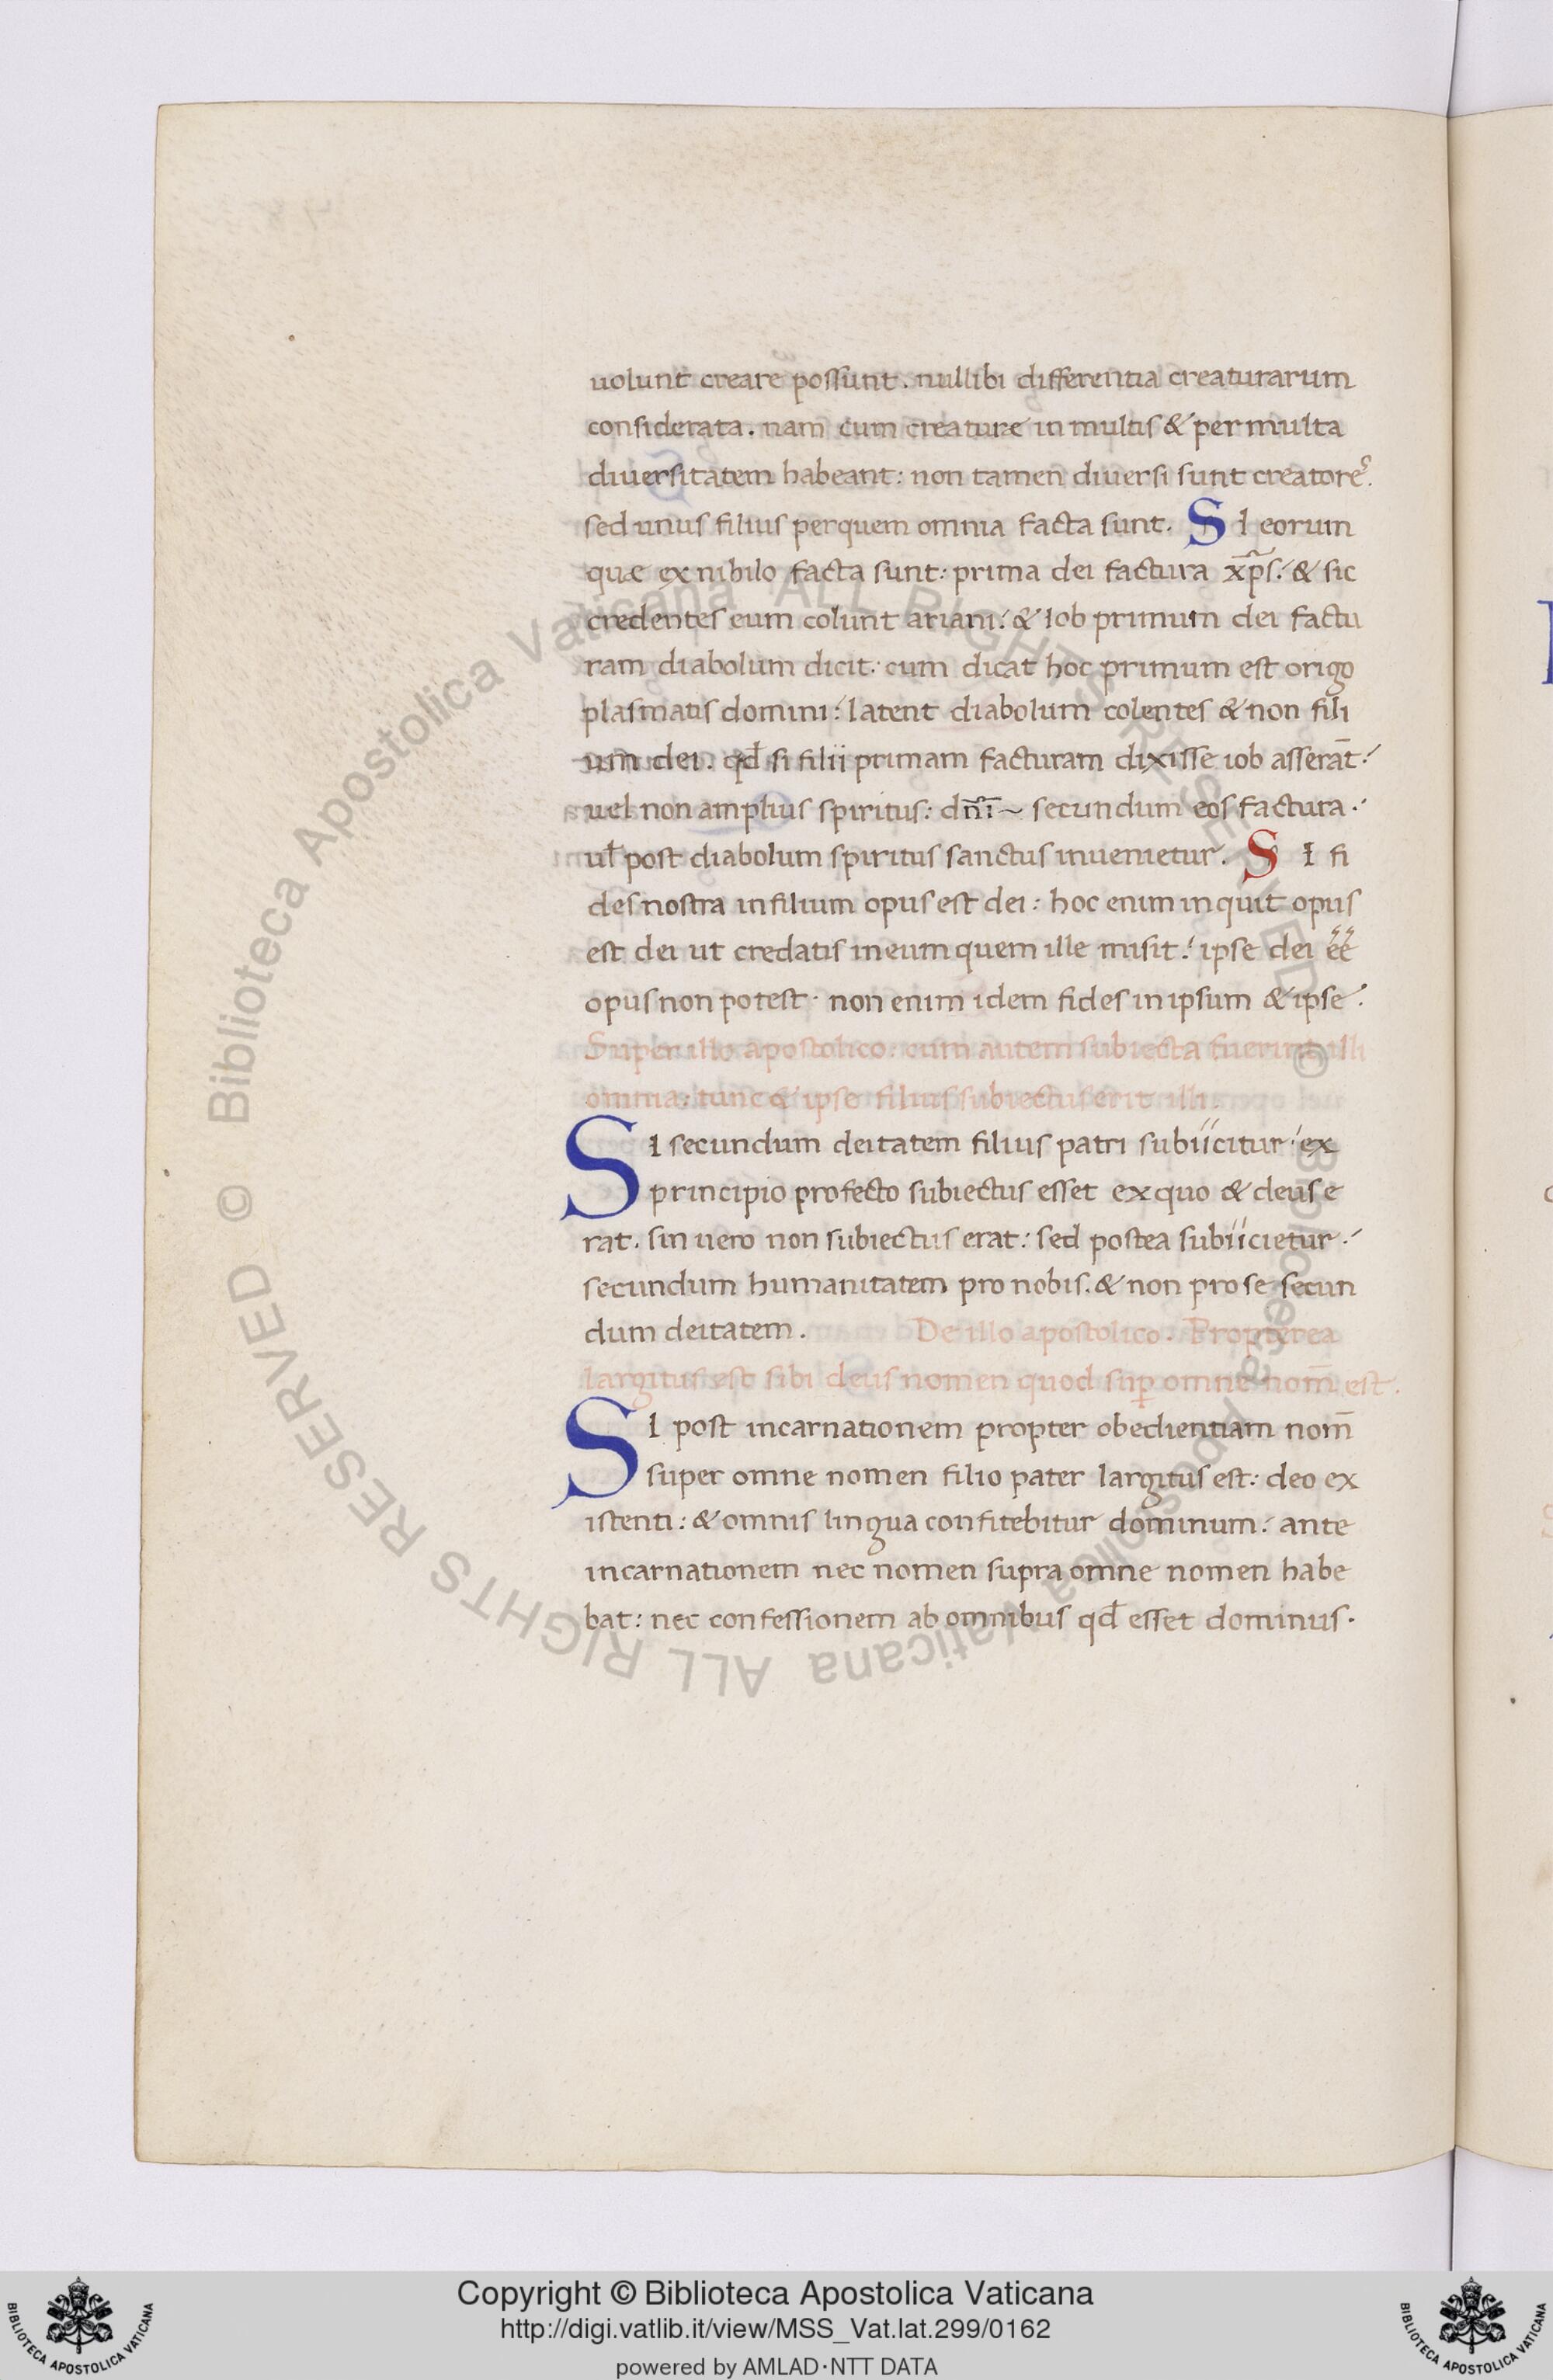 uolunt creare possunt. nullibi differentia creaturarum
considerata. nam cum creature in multis & per multa
diuersitatem habeant: non tamen diuersi sunt creatores.
sed unus filius per quem omnia facta sunt. SI eorum
quæ ex nihilo facta sunt: prima dei factura xp̃s: & sic
credentes eum colunt ariani: & Iob primum dei factu
ram diabolum dicit: cum dicat hoc primum est origo
plasmatis domini: latent diabolum colentes & non fili
um dei. qđ si filii primam facturam dixisse iob asserāt:
uel non amplius spiritus: dñi~ secundum eos factura:
ul̃ post diabolum spiritus sanctus inuenietur. SI fi
des nostra in filium opus est dei: hoc enim inquit opus
est dei ut credatis in eum quem ille misit: ipse dei ẽẽ
opus non potest. non enim idem fides in ipsum & ipse.
Super illo apostolico: cum autem subiecta fuerint illi
omnia: tunc & ipse filius subiectus erit illi.
SI secundum deitatem filius patri subiicitur: ex
principio profecto subiectus esset ex quo & deus e
rat. sin uero non subiectus erat: sed postea subiicietur:
secundum humanitatem pro nobis. & non pro se secun
dum deitatem. De illo apostolico. Propterea
largitus est sibi deus nomen quod sup̱ omne nom̄ est.
SI post incarnationem propter obedientiam nom̄
super omne nomen filio pater largitus est: deo ex
istenti: & omnis lingua confitebitur dominum: ante
incarnationem nec nomen supra omne nomen habe
bat: nec confessionem ab omnibus qđ esset dominus.
© Biblioteca Apostolica Vaticana ALL RIGHTS RESERVED
© Biblioteca Apostolica Vaticana ALL RIGHTS RESERVED
Copyright © Biblioteca Apostolica Vaticana
http://digi.vatlib.it/view/MSS_Vat.lat.299/0162
powered by AMLAD·NTT DATA
BIBLIOTECA APOSTOLICA VATICANA
BIBLIOTECA APOSTOLICA VATICANA